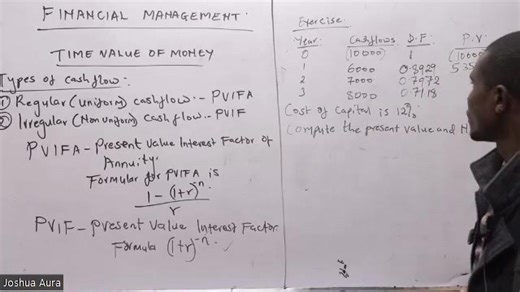 FINANCIAL MANAGEMENT.
TIME VALUE OF MONEY
Types of cashflow:-
① Regular (uniform) cashflow. - PVIFA
② Irregular (Non uniform) cashflow - PVIF
PVIFA - Present Value Interest Factor of
Annuity.
Formular for PVIFA is
1 - (1+r)^-n
r
PVIF - Present Value Interest Factor
Formula (1+r)^-n.
Exercise.
Year Cashflows D.F. P.V
0 (10000) 1 (10000
1 6000 0.8929 535
2 7000 0.7972
3 8000 0.7118
Cost of Capital is 12%
Compute the present value and N
Joshua Aura